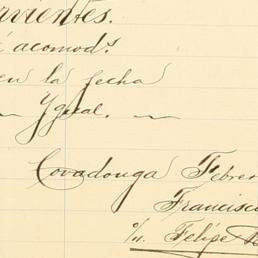 rvientes.
í acomod.s
en la fecha
— Ygual. —
Covadonga Febrer
Francisco
p/n. Felipe